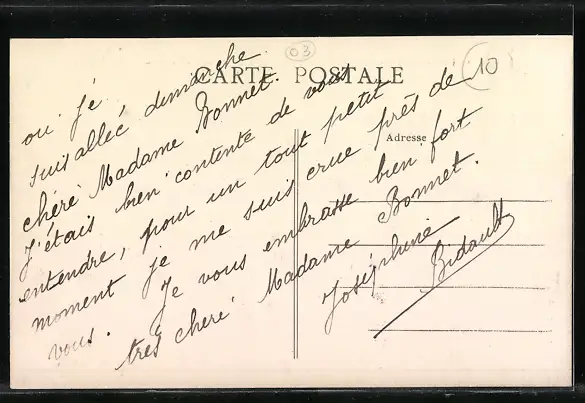 03
CARTE POSTALE
10
Adresse
ou je
suis allée dimanche
chéré Madame Bonnet.
J'étais bien contente de vous
entendre, pour un tout petit
moment je me suis crue près de
vous. Je vous embrasse bien fort
très cheré Madame Bonnet.
Joséphine
Bidault